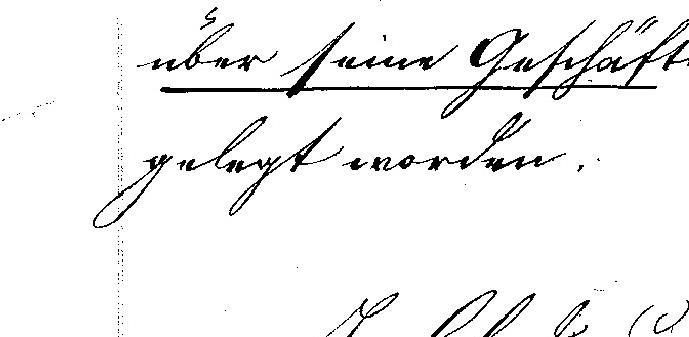 über seine Geschäft
gelegt worden.